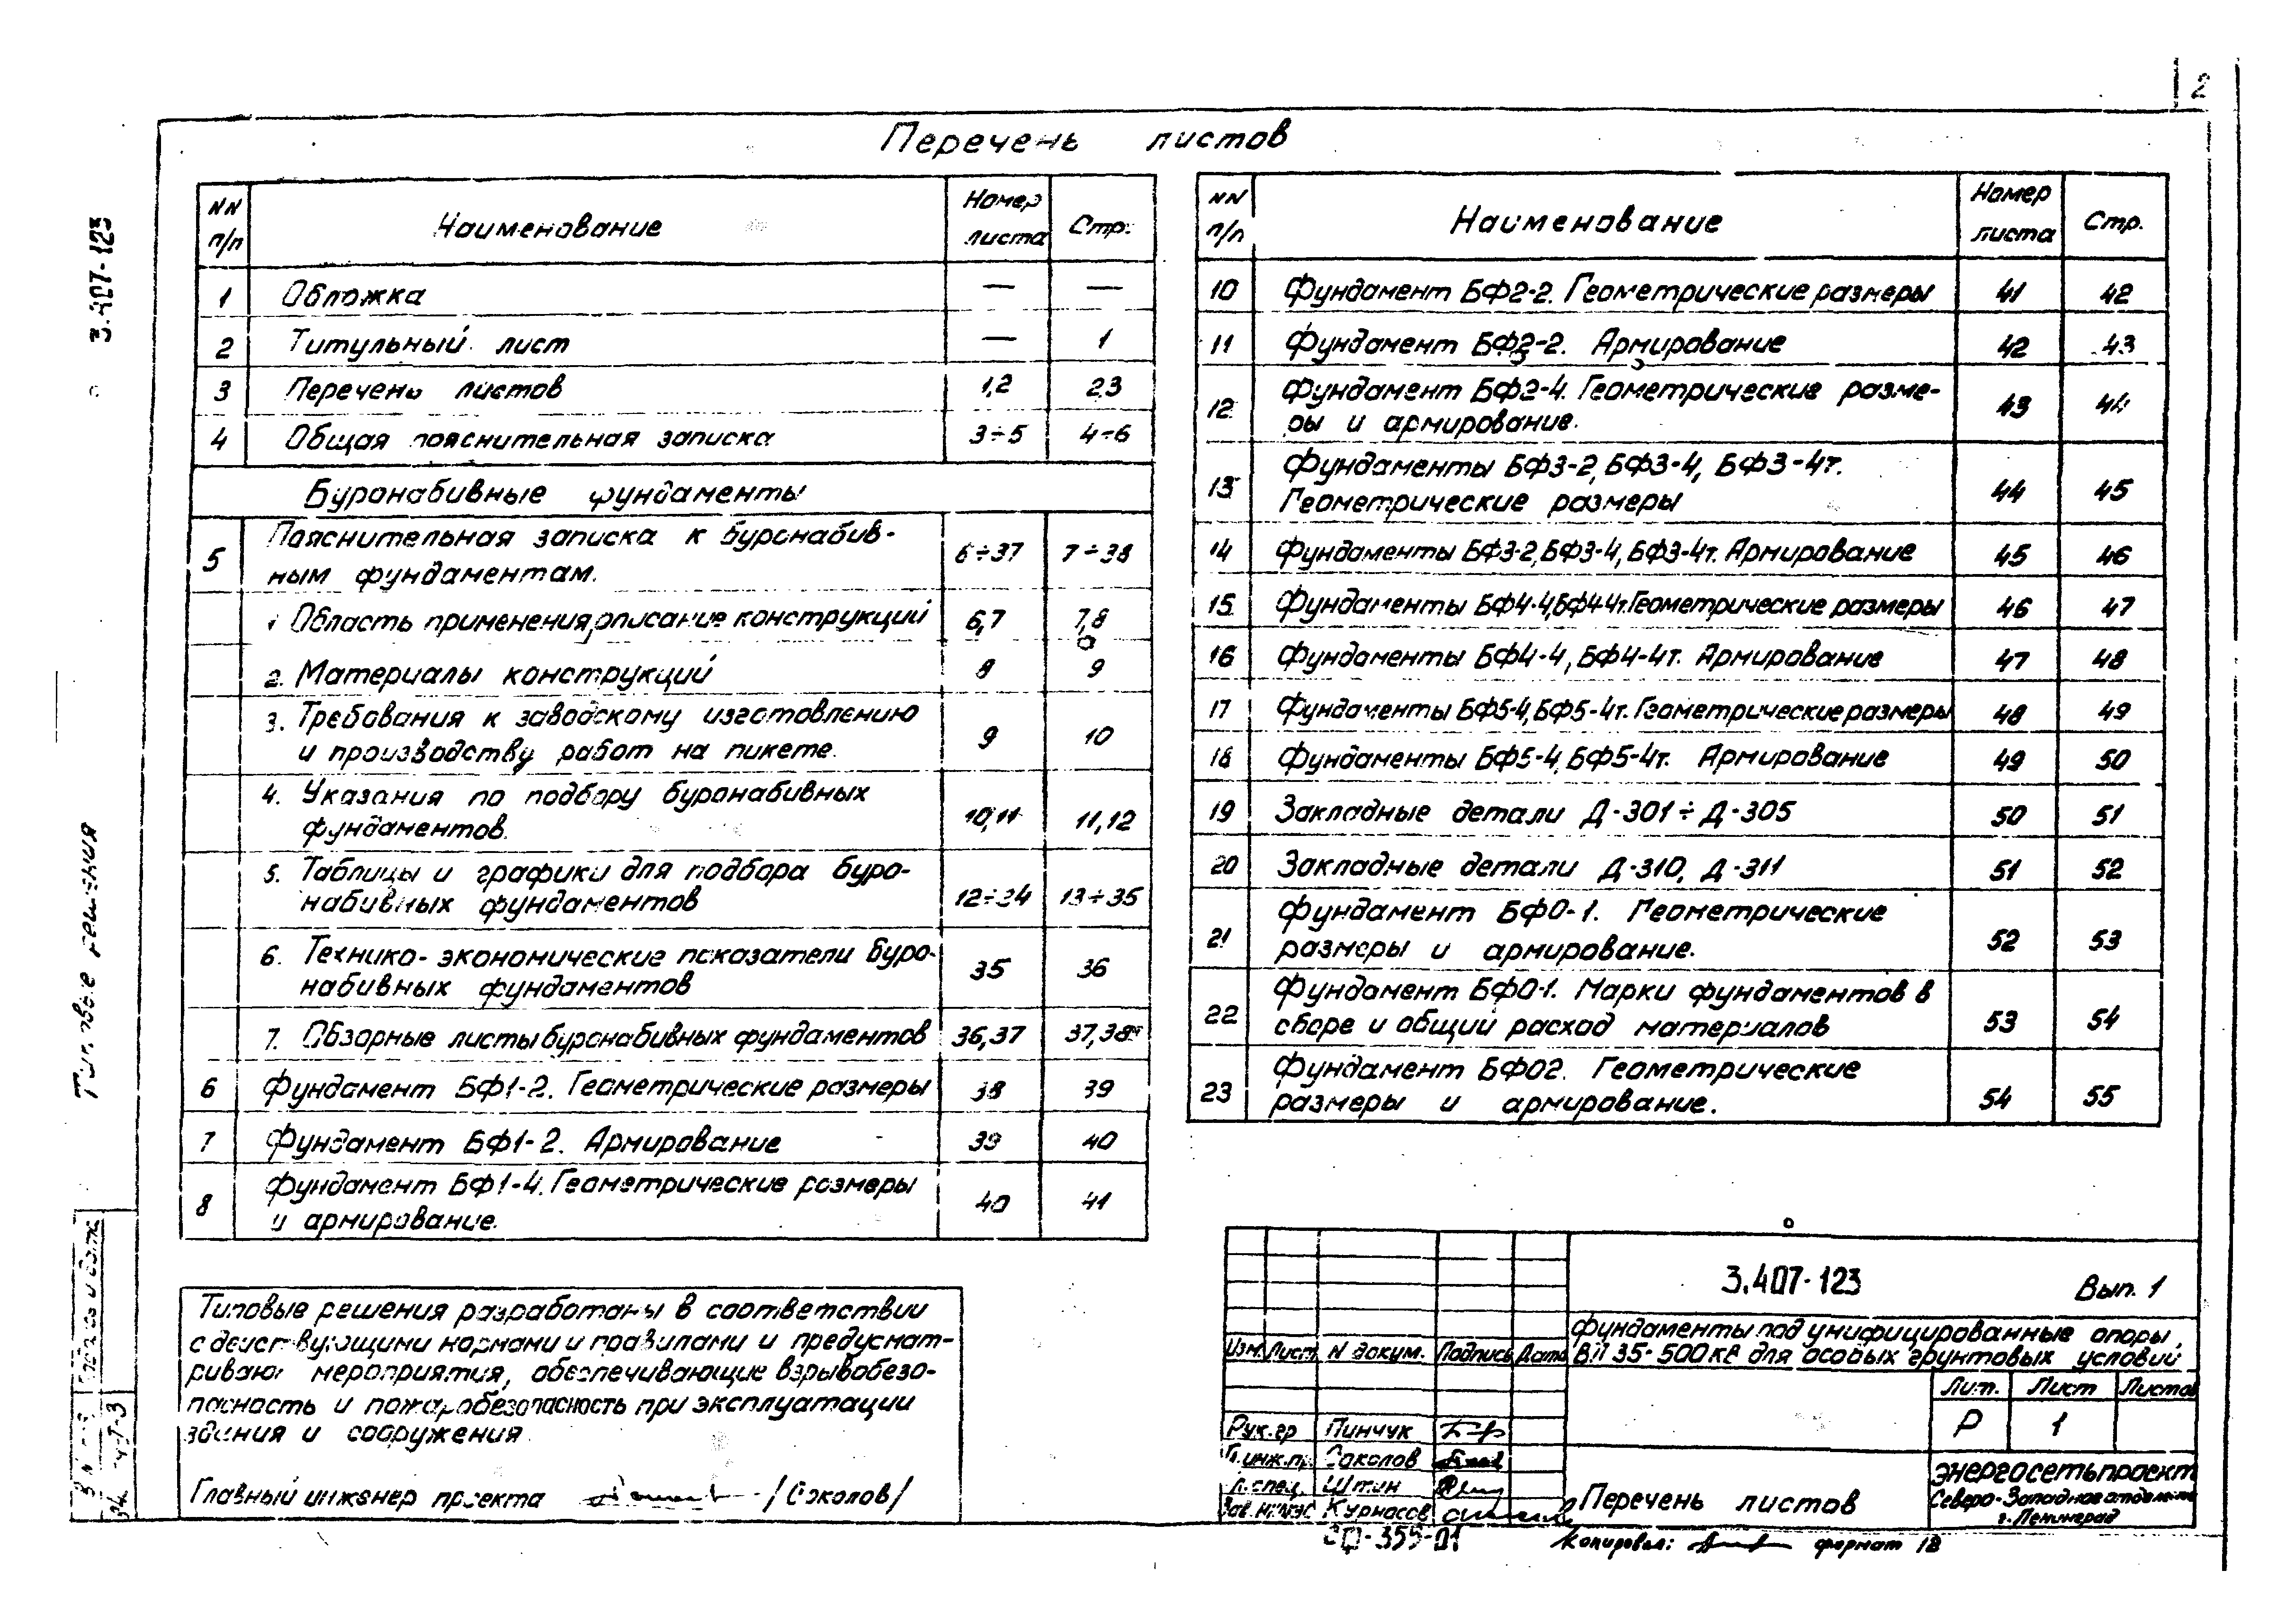 2
Перечень листов
NN п/п Наименование Номер листа Стр.
1 Обложка — —
2 Титульный лист — 1
3 Перечень листов 1,2 2,3
4 Общая пояснительная записка 3÷5 4÷6
Буронабивные фундаменты
5 Пояснительная записка к буронабив-
ным фундаментам. 6÷37 7÷38
1 Область применения, описание конструкций 6,7 7,8
2. Материалы конструкций 8 9
3. Требования к заводскому изготовлению
и производству работ на пикете. 9 10
4. Указания по подбору буронабивных
фундаментов. 10,11 11,12
5. Таблицы и графики для подбора буро-
набивных фундаментов 12÷34 13÷35
6. Технико-экономические показатели буро-
набивных фундаментов 35 36
7. Обзорные листы буронабивных фундаментов 36,37 37,38
6 Фундамент БФ1-2. Геометрические размеры 38 39
7 Фундамент БФ1-2. Армирование 39 40
8 Фундамент БФ1-4. Геометрические размеры
и армирование. 40 41
NN п/п Наименование Номер листа Стр.
10 Фундамент БФ2-2. Геометрические размеры 41 42
11 Фундамент БФ2-2. Армирование 42 43
12 Фундамент БФ2-4. Геометрические разме-
ры и армирование. 43 44
13 Фундаменты БФ3-2, БФ3-4, БФ3-4т.
Геометрические размеры 44 45
14 Фундаменты БФ3-2, БФ3-4, БФ3-4т. Армирование 45 46
15 Фундаменты БФ4-4, БФ4-4т. Геометрические размеры 46 47
16 Фундаменты БФ4-4, БФ4-4т. Армирование 47 48
17 Фундаменты БФ5-4, БФ5-4т. Геометрические размеры 48 49
18 Фундаменты БФ5-4, БФ5-4т. Армирование 49 50
19 Закладные детали Д-301÷Д-305 50 51
20 Закладные детали Д-310, Д-311 51 52
21 Фундамент БФ0-1. Геометрические
размеры и армирование. 52 53
22 Фундамент БФ0-1. Марки фундаментов в
сборе и общий расход материалов 53 54
23 Фундамент БФ02. Геометрические
размеры и армирование. 54 55
Типовые решения разработаны в соответствии
с действующими нормами и правилами и предусмат-
ривают мероприятия, обеспечивающие взрывобезо-
пасность и пожаробезопасность при эксплуатации
здания и сооружения.
Главный инженер проекта /Соколов/
3.407-123 Вып. 1
Фундаменты под унифицированные опоры
ВЛ 35-500 кв для особых грунтовых условий
Изм. Лист N докум. Подпись Дата
Лит. Лист Листов
Р 1
Рук.гр Пинчук
Гл.инж.пр. Соколов
Гл.спец. Штин
Зав. НИЛЭС Курносов
Перечень листов
Энергосетьпроект
Северо-Западное отделение
г. Ленинград
Копировал: формат 12
3.407-123
Типовые решения
Подпись и дата